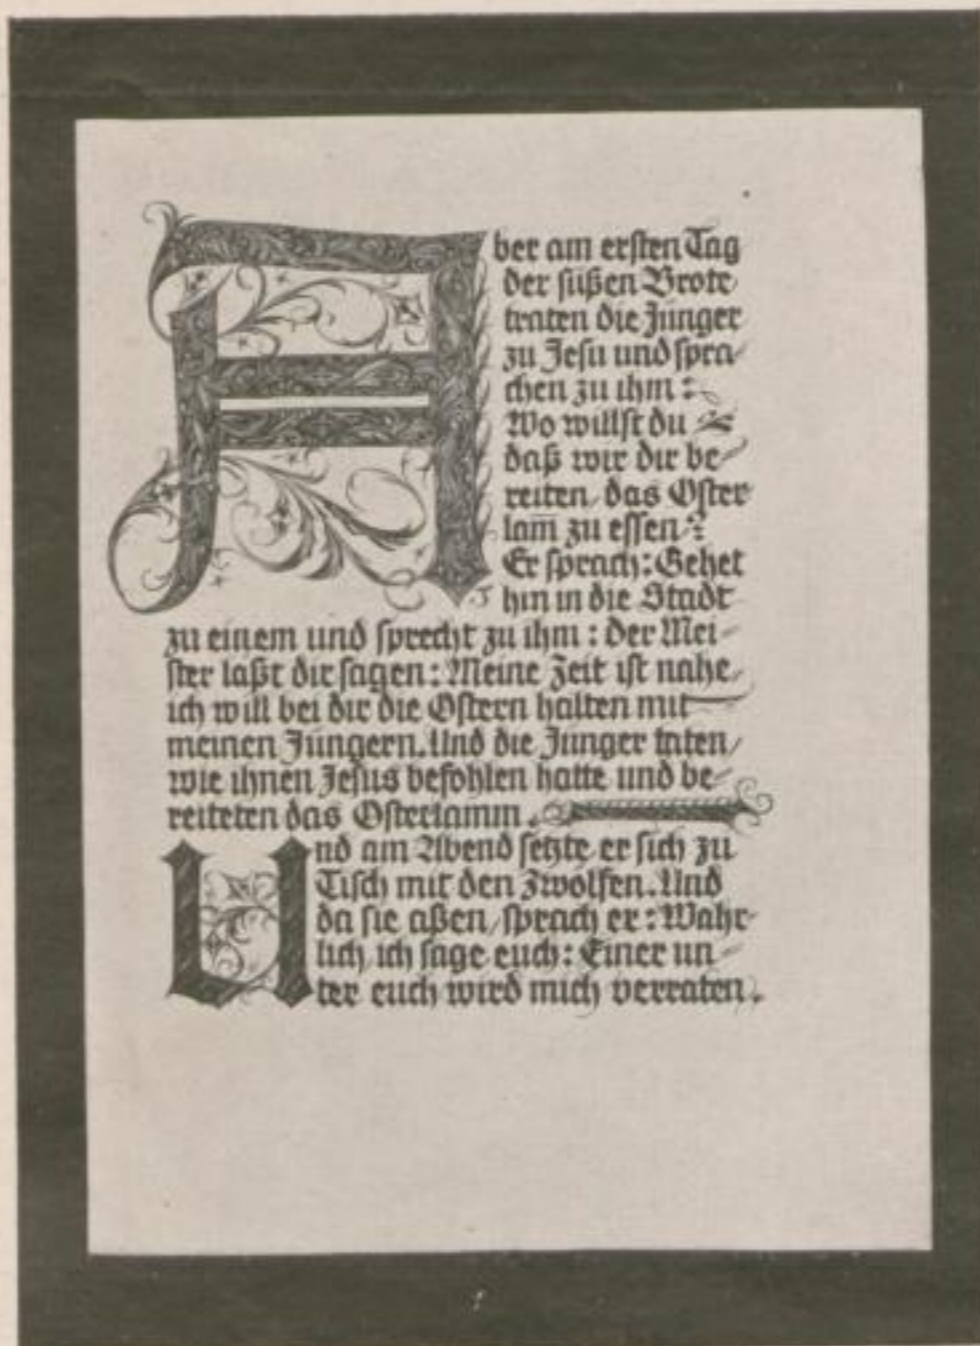 Aber am ersten Tag
der süßen Brote
traten die Jünger
zu Jesu und spra-
chen zu ihm:
Wo willst du
daß wir dir be-
reiten, das Oster
lam̅ zu essen?
Er sprach: Gehet
hin in die Stadt
zu einem und sprecht zu ihm: der Mei-
ster läßt dir sagen: Meine Zeit ist nahe,
ich will bei dir die Ostern halten mit
meinen Jüngern. Und die Jünger taten/
wie ihnen Jesus befohlen hatte und be-
reiteten das Osterlamm.
Und am Abend setzte er sich zu
Tisch mit den Zwölfen. Und
da sie aßen/sprach er: Wahr-
lich ich sage euch: Einer un-
ter euch wird mich verraten.